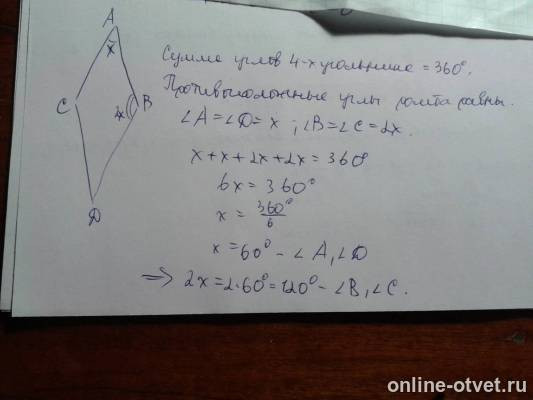 A
x
C
2x
B
D
Сумма углов 4-х угольника = 360°.
Противоположные углы ромба равны.
∠A = ∠D = x ; ∠B = ∠C = 2x.
x + x + 2x + 2x = 360°
6x = 360°
x = 360°/6
x = 60° - ∠A, ∠D
⇒ 2x = 2·60° = 120° - ∠B, ∠C.
online-otvet.ru